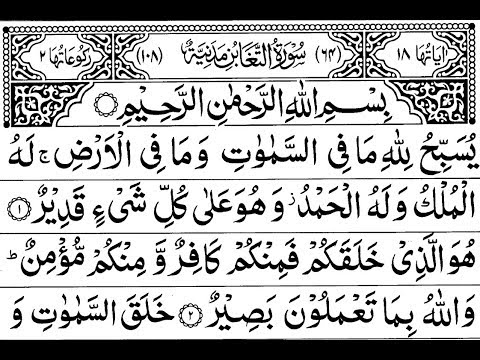 اٰيَاتُهَا ١٨ (٦٤) سُوْرَةُ التَّغَابُنِ مَدَنِيَّةٌ (١٠٨) رُكُوْعَاتُهَا ٢
بِسْمِ اللّٰهِ الرَّحْمٰنِ الرَّحِيْمِ
يُسَبِّحُ لِلّٰهِ مَا فِى السَّمٰوٰتِ وَمَا فِى الْاَرْضِ ۚ لَهُ
الْمُلْكُ وَلَهُ الْحَمْدُ ز وَهُوَ عَلٰى كُلِّ شَىْءٍ قَدِيْرٌ ١
هُوَ الَّذِىْ خَلَقَكُمْ فَمِنْكُمْ كَافِرٌ وَّمِنْكُمْ مُّؤْمِنٌ ؕ
وَاللّٰهُ بِمَا تَعْمَلُوْنَ بَصِيْرٌ ٢ خَلَقَ السَّمٰوٰتِ وَ